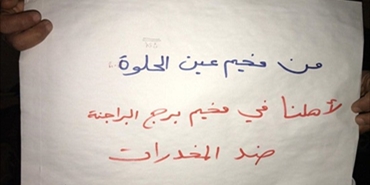 من مخيم عين الحلوة
لأهلنا في مخيم برج البراجنة
ضد المخدرات